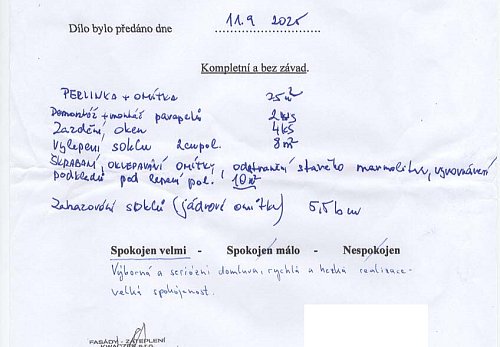 Dílo bylo předáno dne 11.9 2025
Kompletní a bez závad.
PERLINKA + OMÍTKA 25m²
Demontáž + montáž parapetů 2ks
Zazdění oken 4ks
Vylepení soklu 2cm pol. 8m²
ŠKRABÁNÍ, OKLEPÁVÁNÍ OMÍTKY, odstranění starého marmolitu, vyrovnávání
podkladu pod lepení pol. 10m²
Zahazování soklů (jádrové omítky) 5,5bm
Spokojen velmi - Spokojen málo - Nespokojen
Výborná a seriózní domluva, rychlá a hezká realizace-
velká spokojenost.
FASÁDY - ZATEPLENÍ